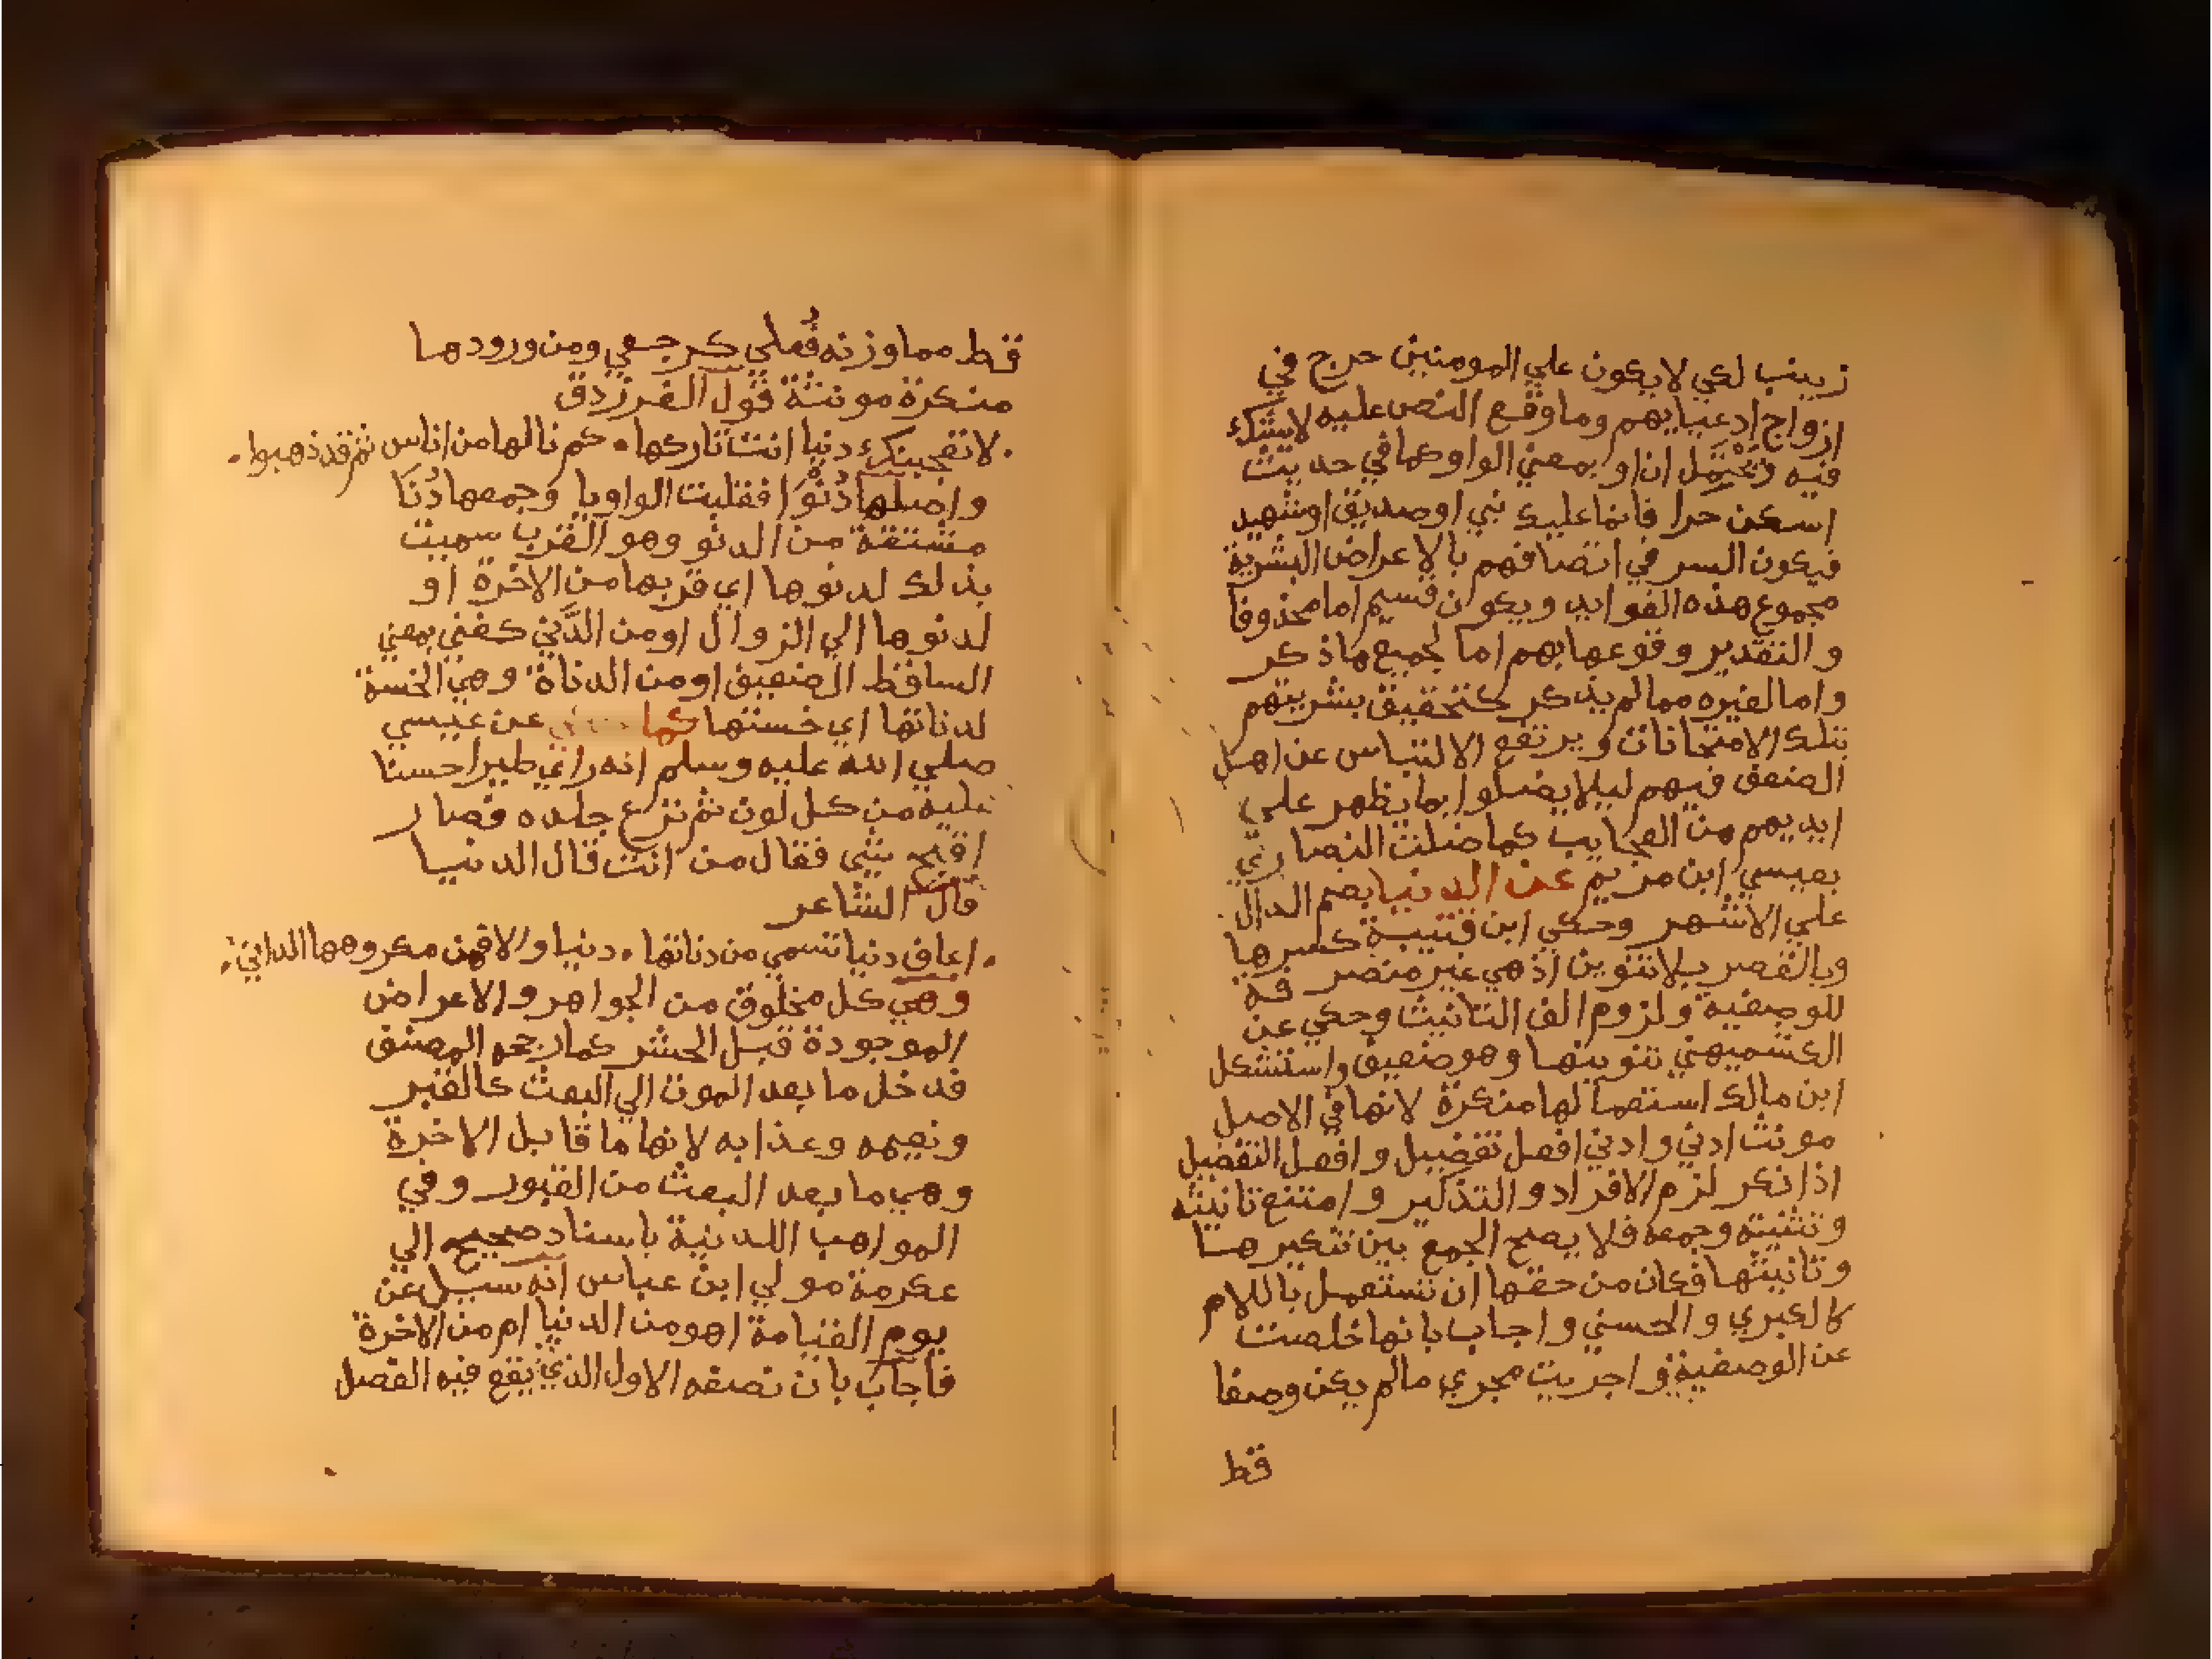 زينب لكي لا يكون علي المومنين حرج في
ازواج ادعيايهم وما وقع النص عليه لا يشك
فيه ويحتمل ان او بمعني الواو كما في حديث
اسكن حرا فانما عليك نبي او صديق او شهيد
فيكون السر في اتصافهم بالاعراض البشرية
مجموع هذه الفوايد ويكون قسيم اما محذوفا
والتقدير وقوعها بهم اما لجميع ما ذكر
واما لغيره مما لم يذكر كتحقيق بشريتهم
بتلك الامتحانات ويرتفع الالتباس عن اهل
الضعف فيهم ليلا يضلوا بما يظهر علي
ايديهم من العجايب كما ضلت النصاري
بعيسي ابن مريم عن الدنيا بضم الدال
علي الاشهر وحكي ابن قتيبة كسرها
وبالقصر بلا تنوين اذ هي غير منصرفة
للوصفية ولزوم الف التانيث وحكي عن
الكشميهني تنوينها وهو ضعيف واستشكل
ابن مالك استعمالها منكرة لانها في الاصل
مونث ادني وادني افعل تفضيل وافعل التفضيل
اذا نكر لزم الافراد والتذكير وامتنع تانيثه
وتثنيته وجمعه فلا يصح الجمع بين تنكيرها
وتانيثها فكان من حقها ان تستعمل باللام
كالكبري والحسني واجاب بانها خلصت
عن الوصفية واجريت مجري ما لم يكن وصفا
قط
قط مما وزنه فُعلي كرجعي ومن ورودها
منكرة مونثة قول الفرزدق
لا تعجبنك دنيا انت تاركها . كم نالها من اناس ثم قد ذهبوا .
واصلها دُنْوَا فقلبت الواو يا وجمعها دُنَا
مشتقة من الدنو وهو القرب سميت
بذلك لدنوها اي قربها من الاخرة او
لدنوها الي الزوال او من الدَّني كغني بمعني
الساقط الضعيف او من الدناة وهي الخسة
لدناتها اي خستها كما عن عيسي
صلي الله عليه وسلم انه راي طيرا حسنا
عليه من كل لون ثم نزع جلده فصار
اقبح شي فقال من انت قال الدنيا
قال الشاعر
. اعاف دنيا تسمي من دناتها . دنيا والا فمن مكروهها الداني .
وهي كل مخلوق من الجواهر والاعراض
الموجودة قبل الحشر كما رجحه المصنف
فدخل ما بعد الموت الي البعث كالقبر
ونعيمه وعذابه لانها ما قابل الاخرة
وهي ما بعد البعث من القبور وفي
المواهب اللدنية باسناد صحيح الي
عكرمة مولي ابن عباس انه سيل عن
يوم القيامة اهو من الدنيا ام من الاخرة
فاجاب بان نصفه الاول الذي يقع فيه الفصل